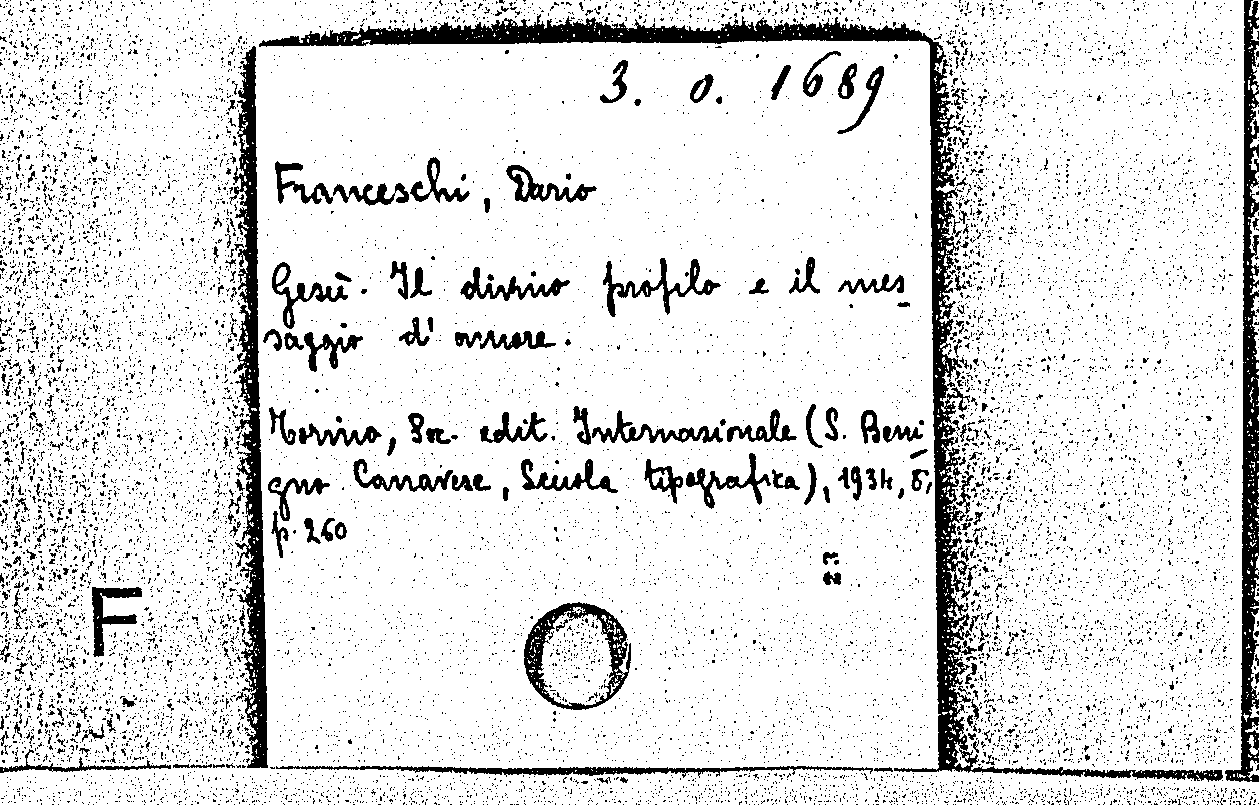 3. o. 1689
Franceschi, Dario
Gesù. Il divino profilo e il mes
saggio d'amore.
Torino, Soc. edit. Internazionale (S. Beni
gno Canavese, Scuola tipografica), 1934, 8°,
p. 260
F